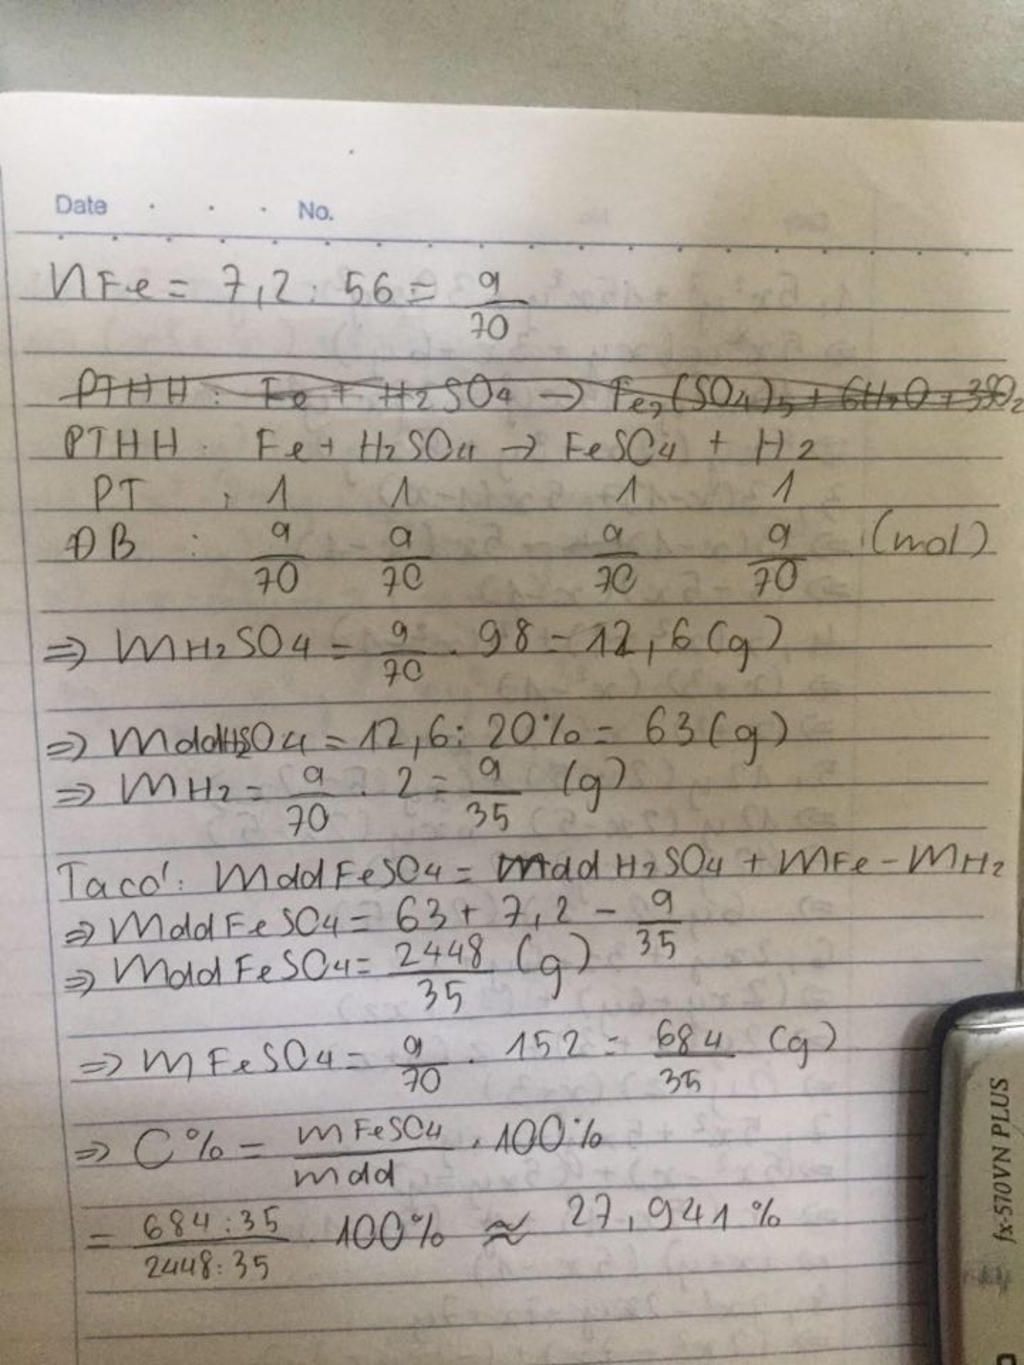 Date . . . No.
nFe = 7,2 : 56 = 9/70
PTHH : Fe + H2SO4 → Fe2(SO4)3 + 6H2O + 3SO2
PTHH : Fe + H2SO4 → FeSO4 + H2
PT : 1 1 1 1
ĐB : 9/70 9/70 9/70 9/70 (mol)
⇒ mH2SO4 = 9/70 . 98 = 12,6 (g)
⇒ mddH2SO4 = 12,6 : 20% = 63 (g)
⇒ mH2 = 9/70 . 2 = 9/35 (g)
Ta có : mddFeSO4 = mddH2SO4 + mFe - mH2
⇒ mddFeSO4 = 63 + 7,2 - 9/35
⇒ mddFeSO4 = 2448/35 (g)
⇒ mFeSO4 = 9/70 . 152 = 684/35 (g)
⇒ C% = mFeSO4/mdd . 100%
= 684:35/2448:35 . 100% ≈ 27,941%
fx-570VN PLUS